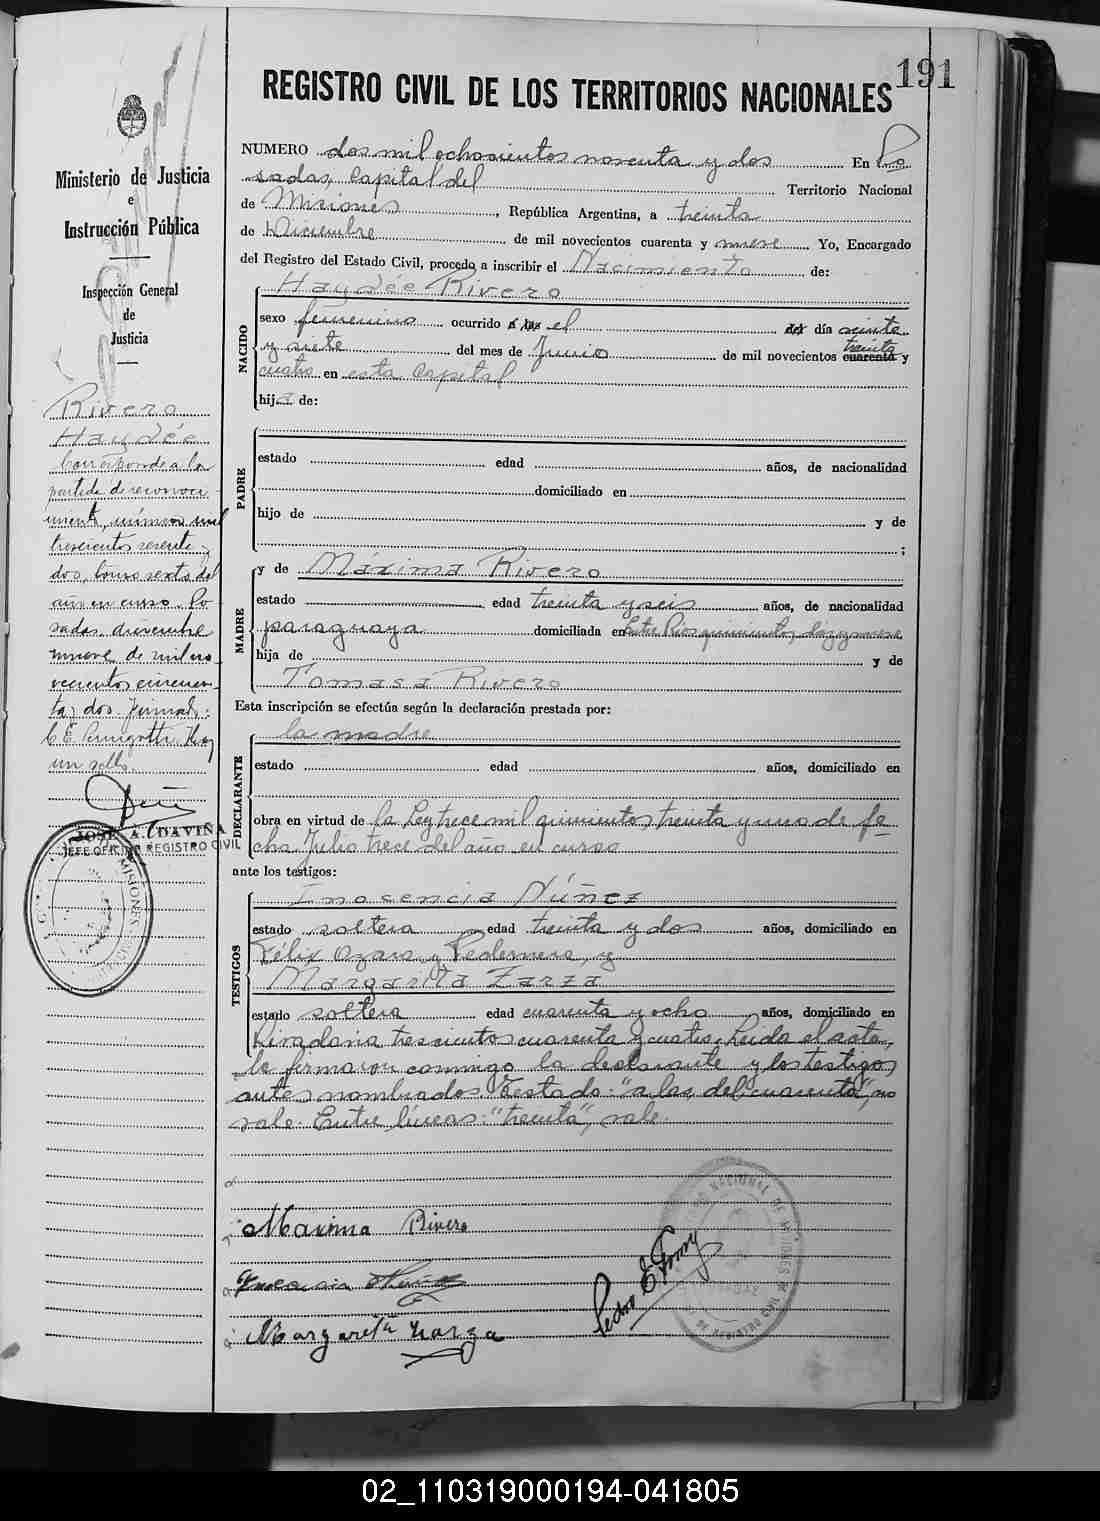 191
REGISTRO CIVIL DE LOS TERRITORIOS NACIONALES
Ministerio de Justicia
e
Instrucción Pública
Inspección General
de
Justicia
NUMERO dos mil ochocientos noventa y dos En Po
sadas, Capital del Territorio Nacional
de Misiones, República Argentina, a treinta
de Diciembre de mil novecientos cuarenta y nueve Yo, Encargado
del Registro del Estado Civil, procedo a inscribir el Nacimiento de:
NACIDO
Haydée Rivero
sexo femenino ocurrido a las el del día veinte
y siete del mes de Junio de mil novecientos cuarenta treinta y
cuatro en esta Capital
hija de:
PADRE
estado edad años, de nacionalidad
domiciliado en
hijo de y de
;
MADRE
y de Máxima Rivero
estado edad treinta y seis años, de nacionalidad
paraguaya domiciliada en Entre Ríos quinientos
hija de y de
Tomasa Rivero
Esta inscripción se efectúa según la declaración prestada por:
DECLARANTE
la madre
estado edad años, domiciliado en
obra en virtud de la Ley trece mil quinientos treinta y uno de fe-
cha Julio trece del año en curso
ante los testigos:
TESTIGOS
Inocencia Núñez
estado soltera edad treinta y dos años, domiciliado en
Félix Ozara y Pedernera, y
Margarita Zarza
estado soltera edad cuarenta y ocho años, domiciliado en
Rivadavia trescientos cuarenta y cuatro. Leída el acta,
la firmaron conmigo la declarante y los testigos
antes nombrados. Testado: "a las, del, cuarenta", no
vale. Entre líneas: "treinta", vale.
Maxima Rivero
Inocencia Nuñez
Margarita Zarza
Pedro E.
Rivero
Haydée
Corresponde a la
partida de reconoci
miento, número mil
trescientos sesenta y
dos, tomo sexto del
año en curso. Po
sadas, diciembre
nueve de mil no
vecientos cincuen-
ta y dos. Firmado:
C. E. Hay
un sello.
JOSE A. DAVIÑA
JEFE OFICINA REGISTRO CIVIL
MISIONES
02_110319000194-041805